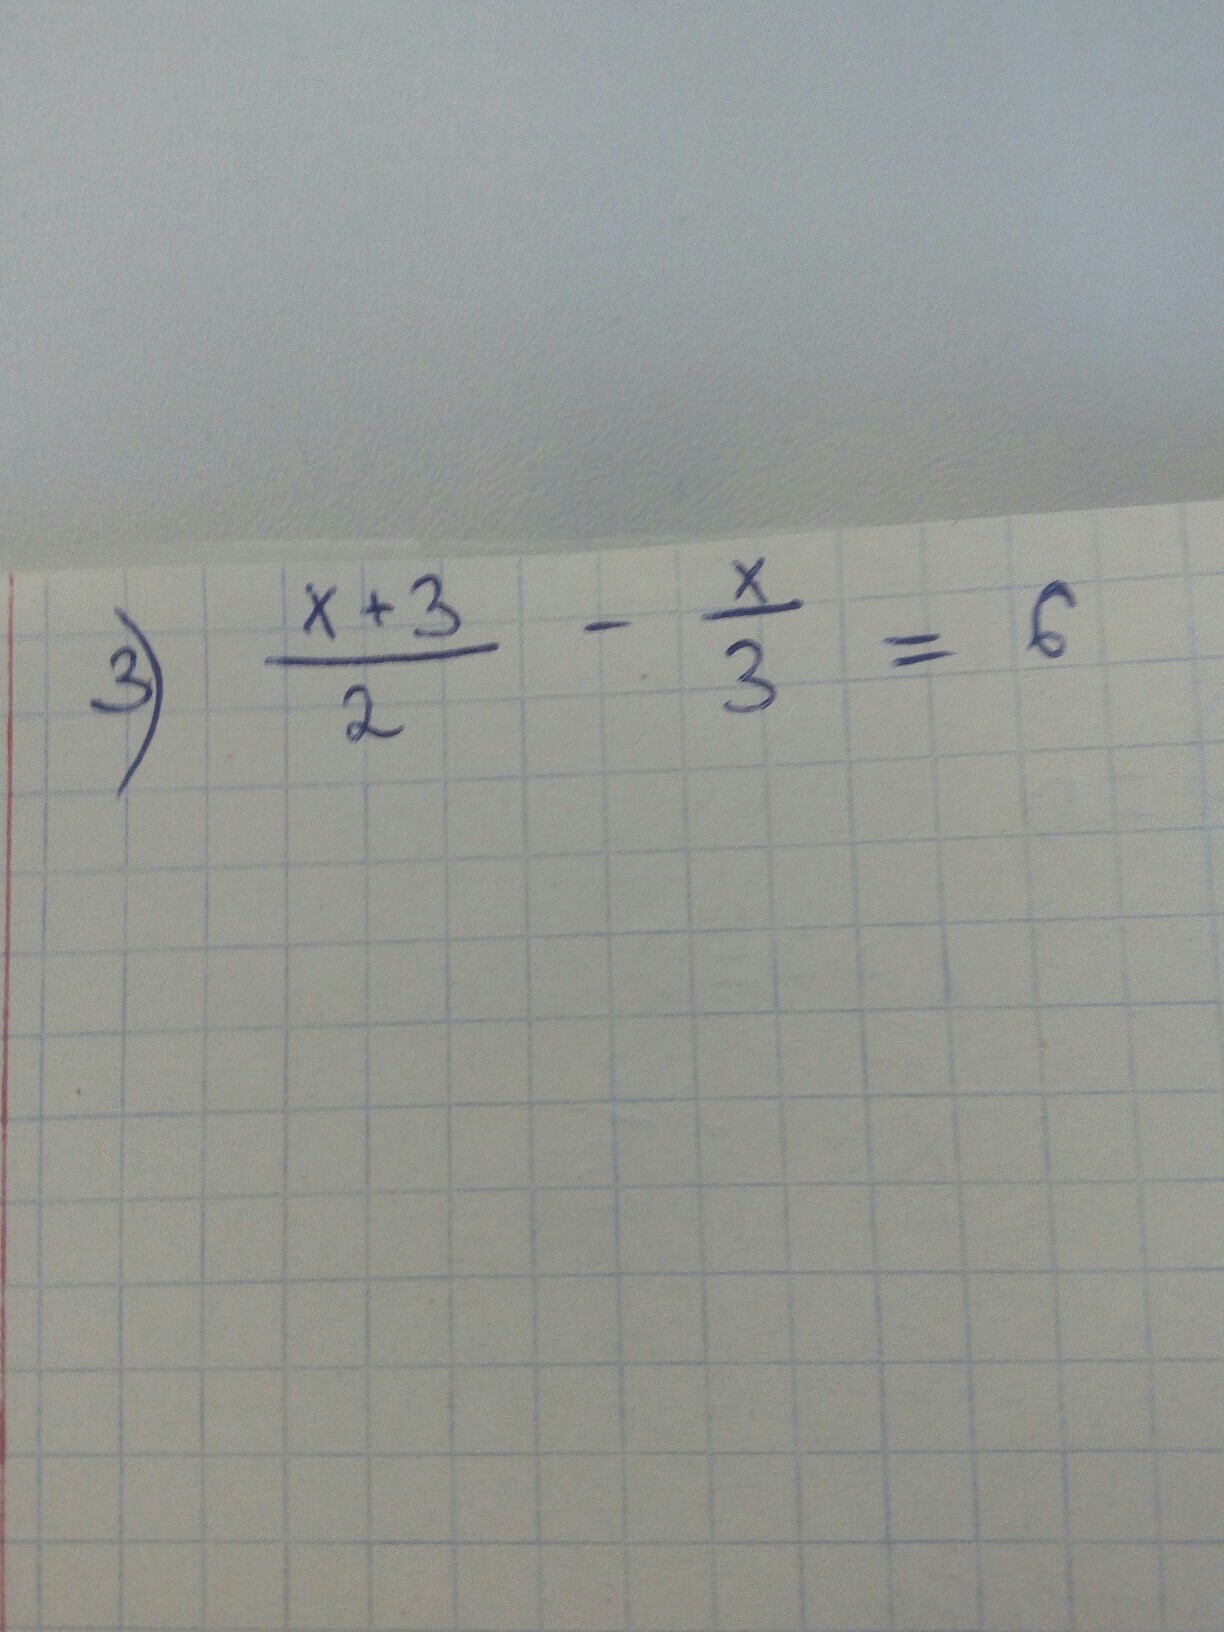 3) \frac{x+3}{2} - \frac{x}{3} = 6